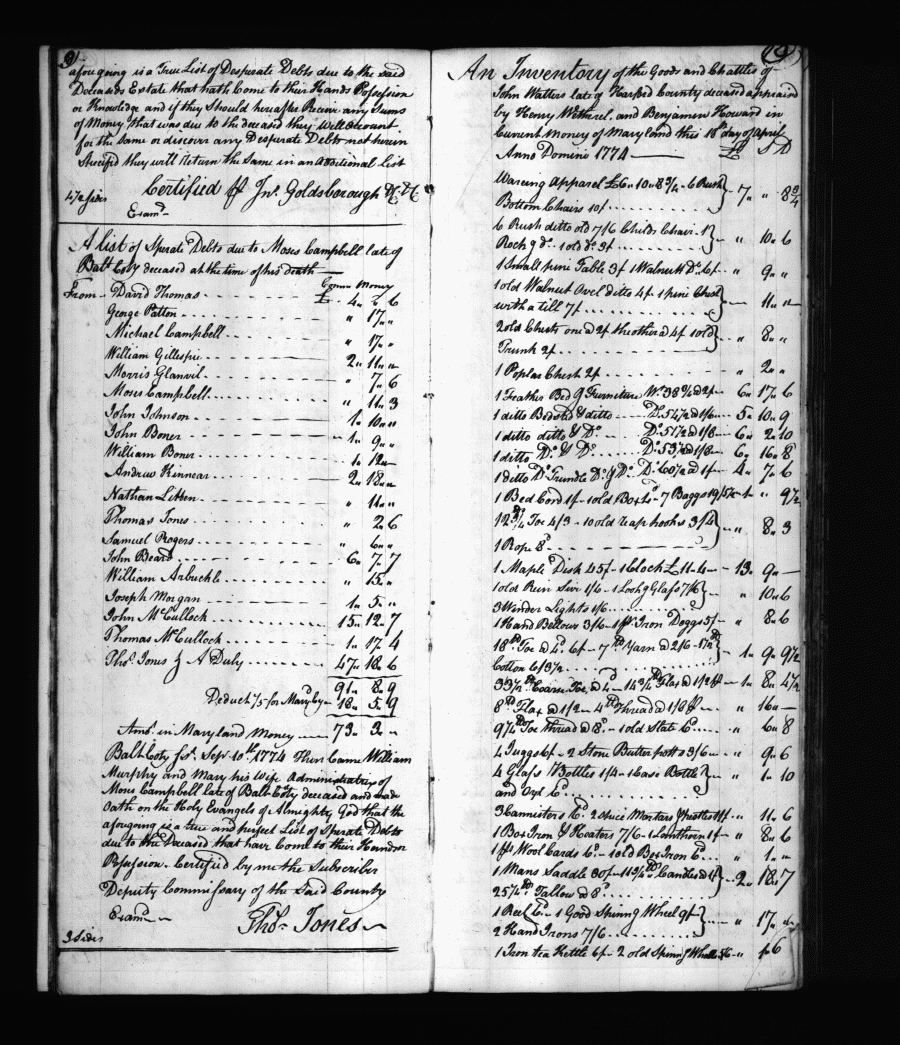 aforegoing is a True List of Desperate Debts due to the said
Deceaseds Estate that hath Come to their Hands Possession
or Knowledge and if they Should hereafter Receive any Sums
of Money that was due to the deceased they will Account
for the same or discover any Desperate Debts not herein
Specified they will Return the Same in an additional List
Certified Jno. Goldsborough
4 1/2 sides
Examd
A list of Sperate Debts due to Moses Campbell late of
Balt Coty deceased at the time of his death
Comn Money
From David Thomas £ 4 " 2 " 6
George Patton " 17 "
Michael Campbell " 17 "
William Gillespie 2 " 11 "
Morris Glanvil " 7 " 6
Moses Campbell " 11 " 3
John Johnson 1 " 10 "
John Boner 1 " 9 "
William Boner 1 " 12 "
Andrew Kinnear 2 " 18 "
Nathan Litten " 11 "
Thomas Jones " 2 6
Samuel Rogers " 6 "
John Beard 6 " 7 " 7
William Arbuckle " 15 "
Joseph Morgan 1 " 5 "
John McCulloch 15 " 12 " 7
Thomas McCulloch 1 " 17 " 4
Thos. Jones A Duly 47 " 18 " 6
91 " 8 " 9
Deduct 1/5 for Maryby 18 " 5 " 9
Amt. in Maryland Money 73 " 3 "
Balt Coty Sst. Sept. 10th 1774 Then Came William
Murphy and Mary his Wife Administratrix of
Moses Campbell late of Balt Coty deceased and made
Oath on the Holy Evangels of Almighty God that the
aforegoing is a true and perfect List of Sperate Debts
due to the Deceased that have Come to their Hands or
Possession. Certified by me the Subscriber
Deputy Commissary of the Said County
Examd Thos. Jones
3 Sides
An Inventory of the Goods and Chattles of
John Watters late of Harford County deceased appraised
by Henry Wetheral, and Benjamin Howard in
Current Money of Maryland this 18th day of April
Anno Domini 1774 £ S D
Wareing Apparel £6 " 10 " 8 3/4 - 6 Rush
Bottom Chairs 10/ 7 " " 8 3/4
6 Rush ditto old 7/6 Childs Chair 1/
1 old Do. 3/ " 10 " 6
1 Small pine Table 3/ 1 Walnut Do. 6/ " 9 "
1 old Walnut Ovel ditto 4/ 1 pine Chest
with a till 7/ " 11 "
2 old Chests one @ 2/ the other @ 4/ 1 old
Trunk 2/ " 8 "
1 Poplar Chest 2/ " 2 "
1 Feather Bed & Furniture Wt. 38 3/4 @ 2/ 6 " 17 " 6
1 ditto Bedsted & ditto Do. 54 1/2 @ 1/6 5 " 10 " 9
1 ditto ditto & Do. Do. 51 1/2 @ 1/8 6 " 2 " 10
1 ditto Do. & Do. Do. 53 1/2 @ 1/8 6 " 16 " 8
1 ditto Do. Trundle Do. & Do. Do. 60 1/2 @ 1/ 4 " 7 " 6
1 Bed Cord 1/ - 1 old Box - 7 Baggs 19/ 1 " " 9 1/2
Toe 4/3 - 10 old reap hooks 3/4
1 Rope 8d " 8 " 3
1 Maple Desk 45/ - 1 Clock £11 " 4 13 " 9 "
1 old Sive 1/6 - 1 Lookg Glass 7/6
3 Window Lights 1/6 " 10 " 6
1 Hand Bellows 3/6 - 1 pr Iron Doggs 5/ " 8 " 6
18 lb Toe @ 4d 6/ - 7 lb Yarn @ 2/6 - 1 1/2 lb
Cotton 1 " 9 " 9 1/2
33 1/2 lb Coarse Toe @ 4d - 14 3/4 lb Flax @ 1/2 1 " 8 " 4 1/2
8 lb Flax @ 1/2 - 4 lb Thread @ 1/8 " 16 "
9 1/4 lb Toe thread @ 8d - 1 old Slate 6d " 6 " 8
4 Juggs 6/ - 2 Stone Butter potts 3/6 " 9 " 6
4 Glass Bottles 1/4 - 1 Case Bottle
and 6d " 1 " 10
3 Cannisters 2 Spice Mortars & Pestles " 11 " 6
1 Box Iron & Heaters 7/6 - 1 Lanthorn 1/ " 8 " 6
1 pr Wool Cards 6d - 1 old Box Iron 6d " 1 "
1 Mans Saddle 30/ - 11 3/4 lb Candles @ 1/
25 1/2 lb Tallow @ 8d 2 " 18 " 7
1 Reel 6d - 1 Good Spining Wheel 9/
2 Hand Irons 7/6 " 17 "
1 Iron tea Kettle 6/ - 2 old Spining Wheels " 6